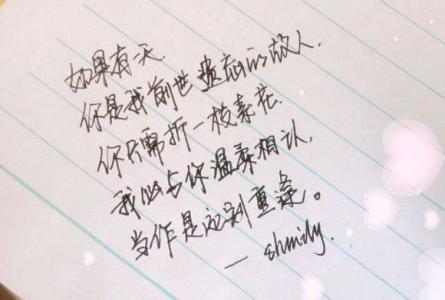 如果有一天.
你是我前世遗忘的故人.
你只需折一枝素花.
我必与你温柔相认.
当作是久别重逢。
— shmily.